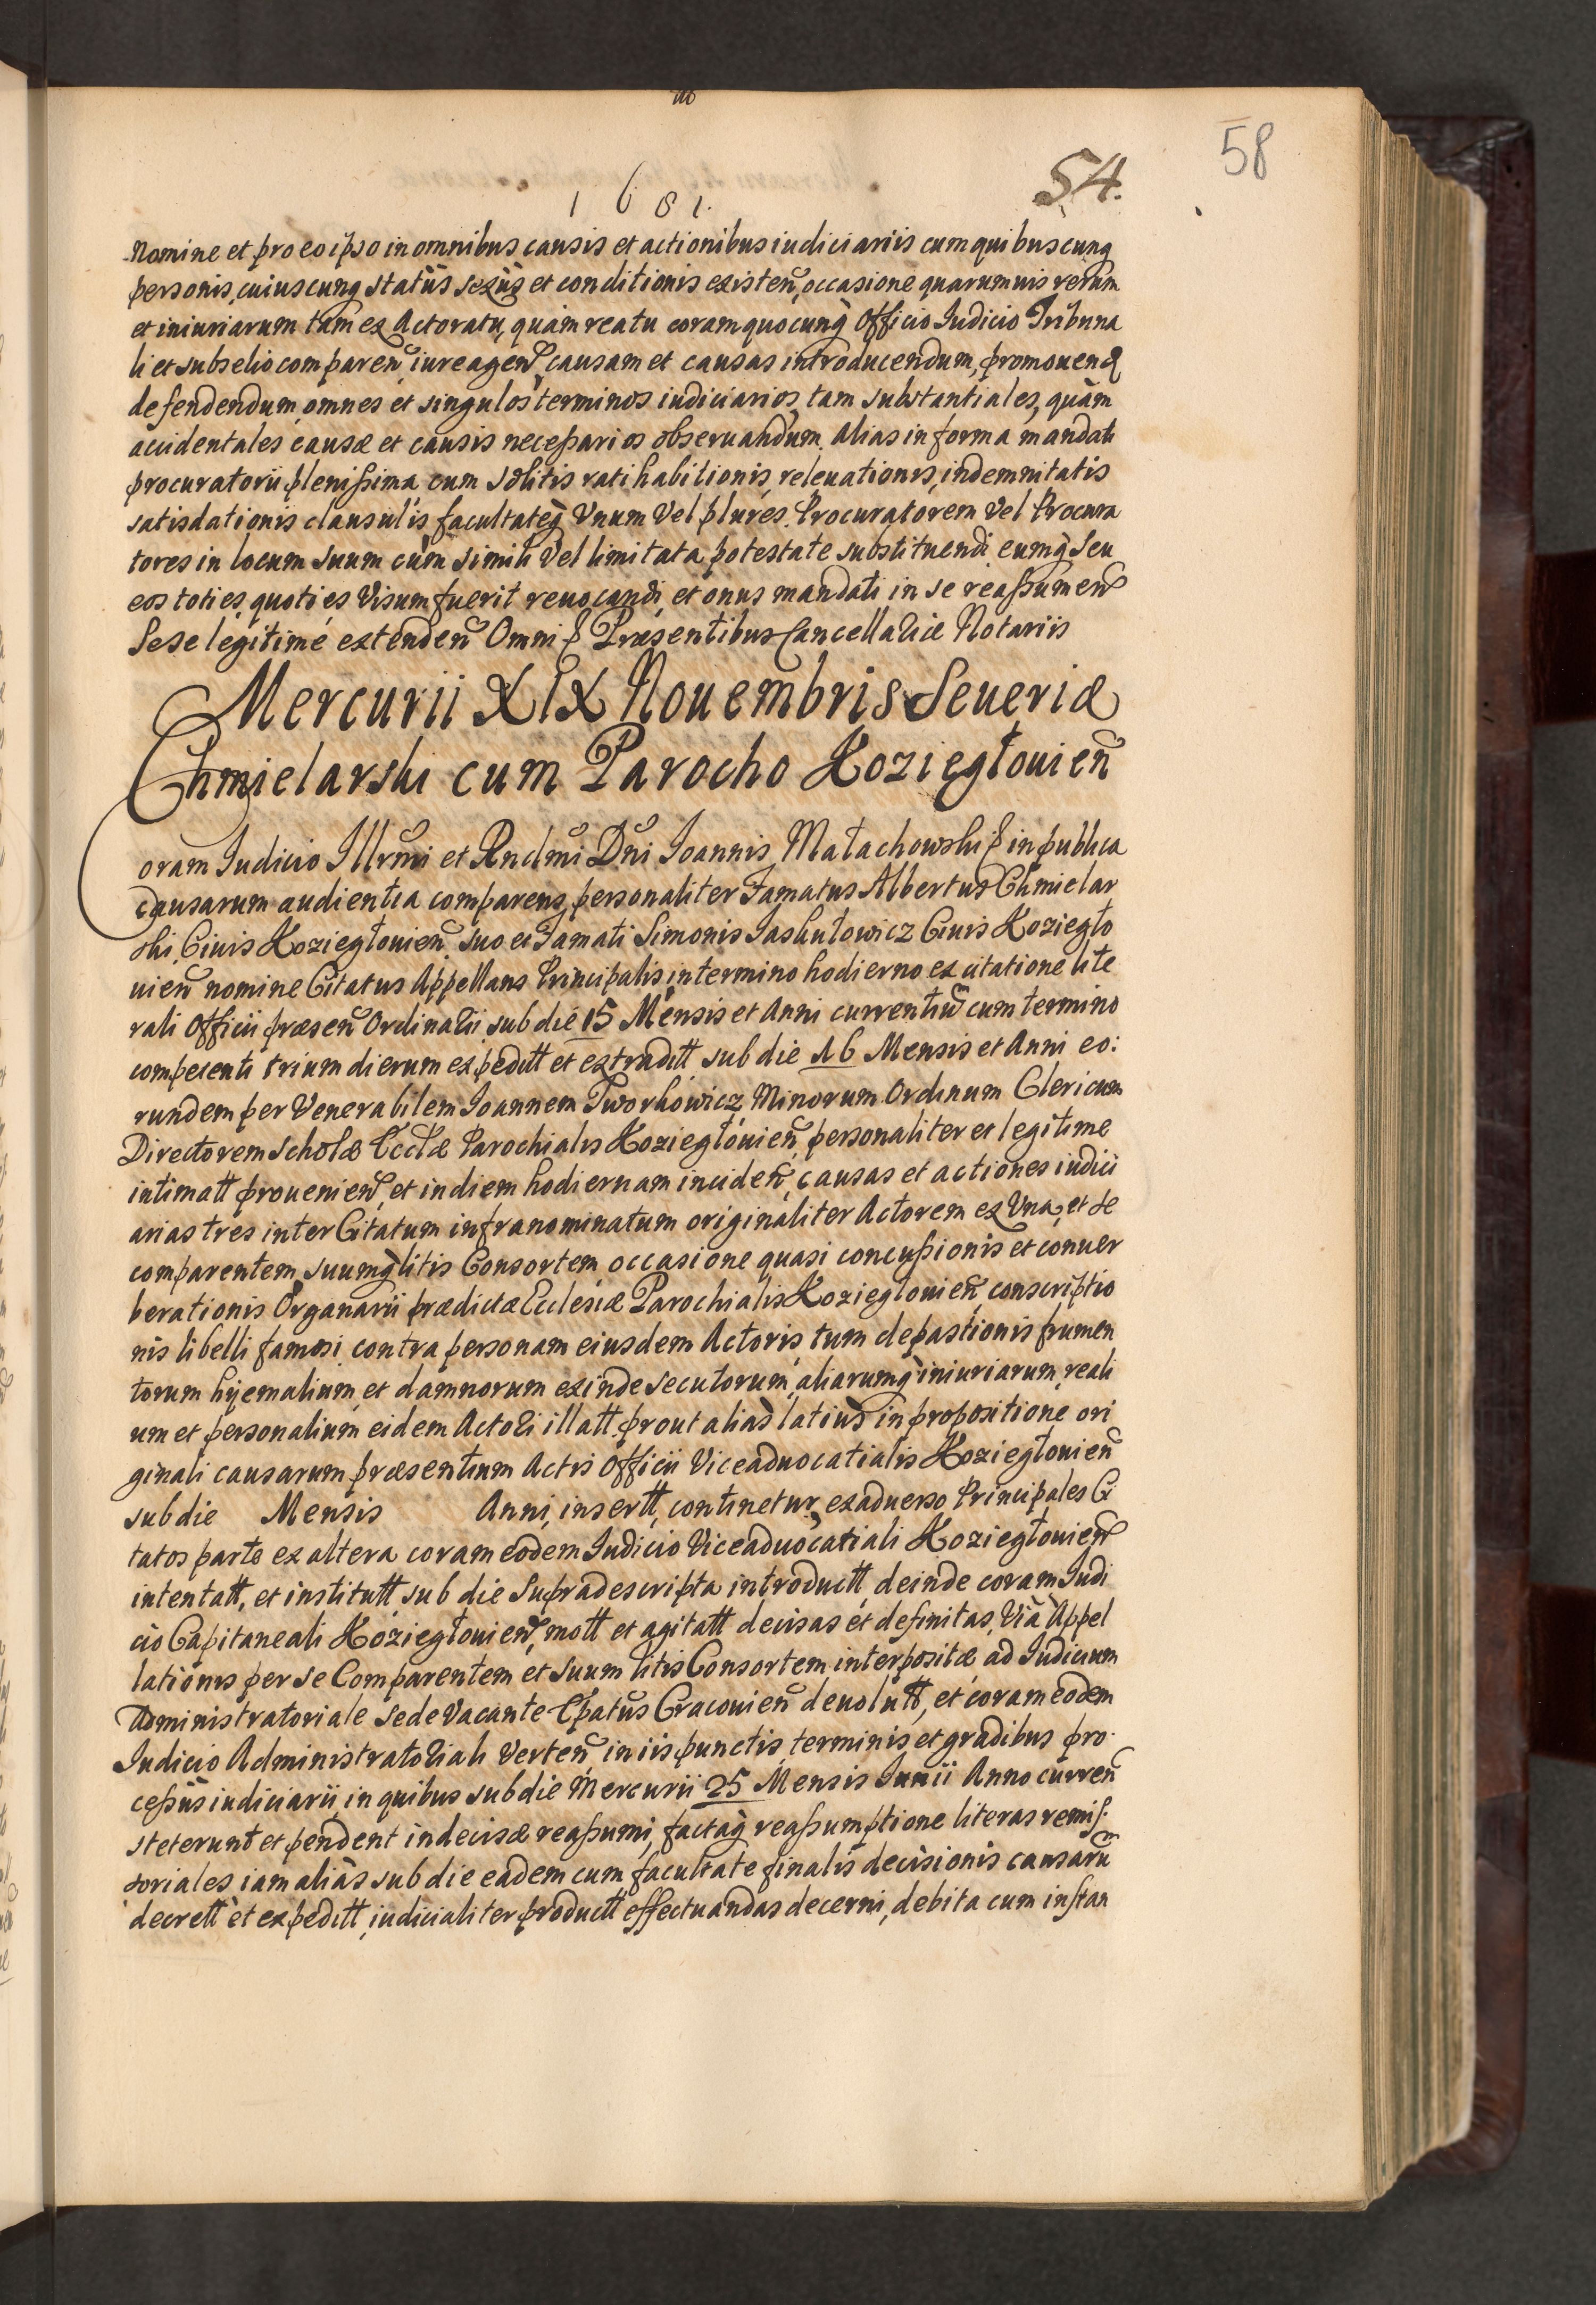 58
54.
1681.
nomine et pro eo ipso in omnibus causis et actionibus iudiciariis cum quibuscunq
personis, cuiuscunq statûs sexûs et conditionis existeñ, occasione quarumuis rerum
et iniuriarum tam ex Actoratu, quàm reatu coram quocunq̀ Officio Iudicio Tribuna
li et subselio compareñ, iure ageñ, causam et causas introducendum, promouend
defendendum, omnes et singulos terminos iudiciarios, tam substantiales, quàm
accidentales causæ et causis necessarios obseruandum. Alias in forma mandati
procuratorii plenissima cum solitis ratihabitionis, releuationis, indemnitatis
satisdationis clausulis facultateq̀ Vnum Vel plures Procuratorem Vel Procura
tores in locum suum cum simili Vel limitata potestate substituendi eumq̀ seu
eos toties, quoties Visum fuerit reuocandi, et onus mandati in se reassumeñ
sese legitimè extendeñ Omni & Præsentibus Cancellariæ Notariis
Mercurii XIX Nouembris Seueriæ
Chmielarski cum Parocho Koziegłouieñ
Coram Iudicio Illrmi et Rndmi Dñi Ioannis Małachowski & in publica
causarum audientia comparens personaliter Famatus Albertus Chmielar
ski, Ciuis Koziegłouieñ suo et Famati Simonis Jaskułowicz Ciuis Koziegło
uieñ nomine Citatus Appellans Principalis, in termino hodierno ex citatione lite
rali Officii præseñ Ordinarii sub die 15 Mensis et Anni currentiũ cum termino
competenti trium dierum expeditt et extraditt sub die 16 Mensis et Anni eo:
rundem per Venerabilem Ioannem Tworkowicz Minorum Ordinum Clericum
Directorem scholæ Ecclæ Parochialis Koziegłouieñ, personaliter et legitime
intimatt prouenieñ, et in diem hodiernam incideñ, causas et actiones iudici
arias tres inter Citatum infranominatum originaliter Actorem ex Vna, et se
comparentem, suumq̀ litis Consortem occasione quasi concussionis et conuer
berationis Organarii prædictæ Ecclesiæ Parochialis Koziegłouieñ, conscriptio
nis libelli famosi contra personam eiusdem Actoris, tum depastionis frumen
torum hyemalium, et damnorum exinde secutorum, aliarumq̀ iniuriarum, reali
um et personalium eidem Actori illatt, prout alias latius in propositione ori
ginali causarum præsentium Actis Officii Viceaduocatialis Koziegłouieñ
sub die Mensis Anni, insertt, continetur, ex aduerso Principales Ci
tatos parte ex altera coram eodem Iudicio Viceaduocatiali Koziegłouieñ
intentatt, et institutt sub die supradescripta introductt, deinde coram Iudi
cio Capitaneali Koziegłouieñ, mott et agitatt decisas et definitas, Via Appel
lationis per se Comparentem et suum litis Consortem interpositæ ad Iudicium
Administratoriale Sede Vacante Epatûs Cracouieñ deuolutt, et coram eodem
Iudicio Administratoriali Verteñ in iis punctis, terminis et gradibus pro-
cessûs iudiciarii, in quibus sub die Mercurii 25 Mensis Iunii Anno curreñ
steterunt et pendent indecisæ reassumi, factaq̀ reassumptione literas remis-
soriales iam aliàs sub die eadem cum facultate finalis decisionis causarũ
decrett et expeditt, iudicialiter productt effectuandas decerni, debita cum instan